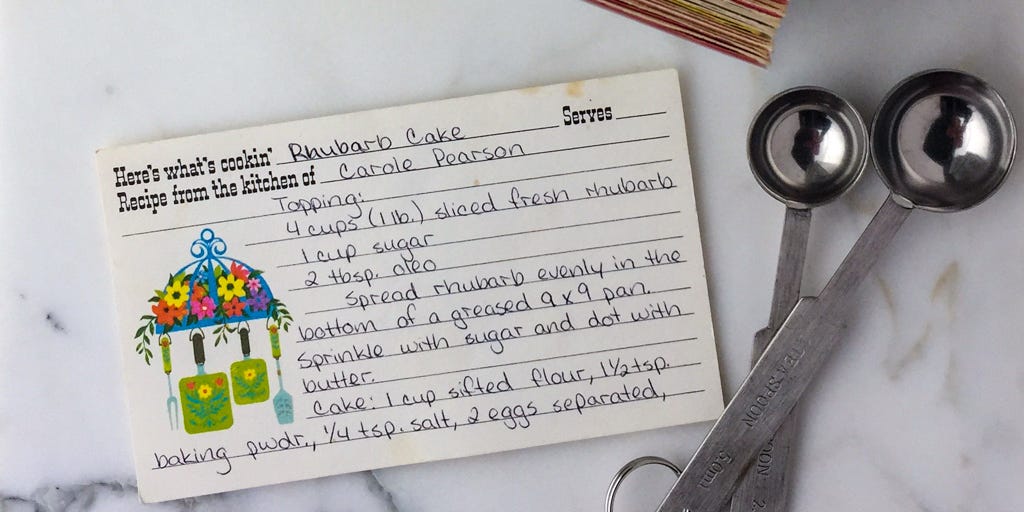 Here's what's cookin' Rhubarb Cake Serves
Recipe from the kitchen of Carole Pearson
Topping:
4 cups (1 lb.) sliced fresh rhubarb
1 cup sugar
2 tbsp. oleo
Spread rhubarb evenly in the
bottom of a greased 9x9 pan.
Sprinkle with sugar and dot with
butter.
Cake: 1 cup sifted flour, 1½ tsp.
baking pwdr., ¼ tsp. salt, 2 eggs separated,
TEASPOON
5.0ml